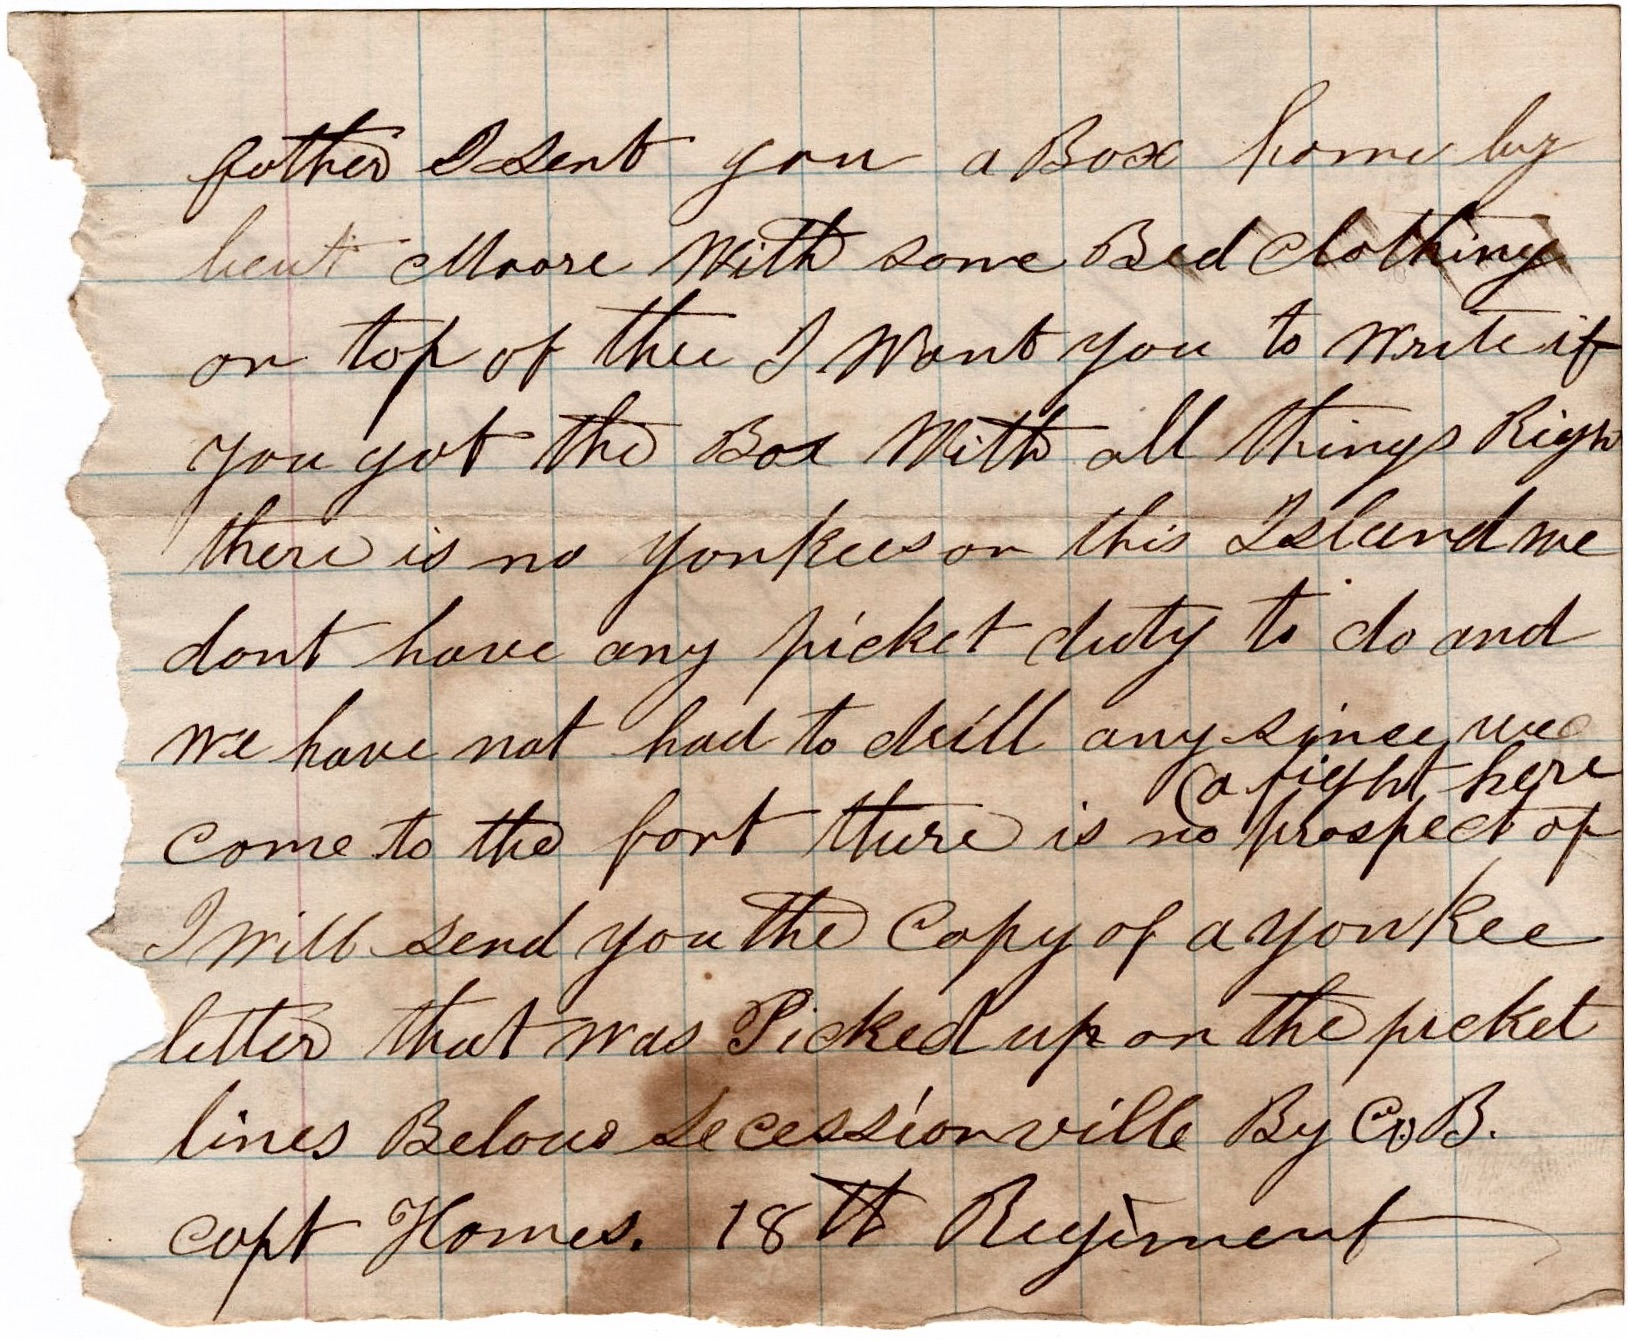 father I sent you a Box home by
leut Moore With some Bed clothing
on top of thee I Want you to Write if
you got the Box With all things Righ
there is no yonkees on this Island we
dont have any picket duty to do and
we have not had to drill any since we
a fight here
come to the fort there is no prospect of
I Will send you the Copy of a yonkee
letter that was Picked up on the picket
lines Below secessionville By Co B.
capt Homes. 18th Regiment